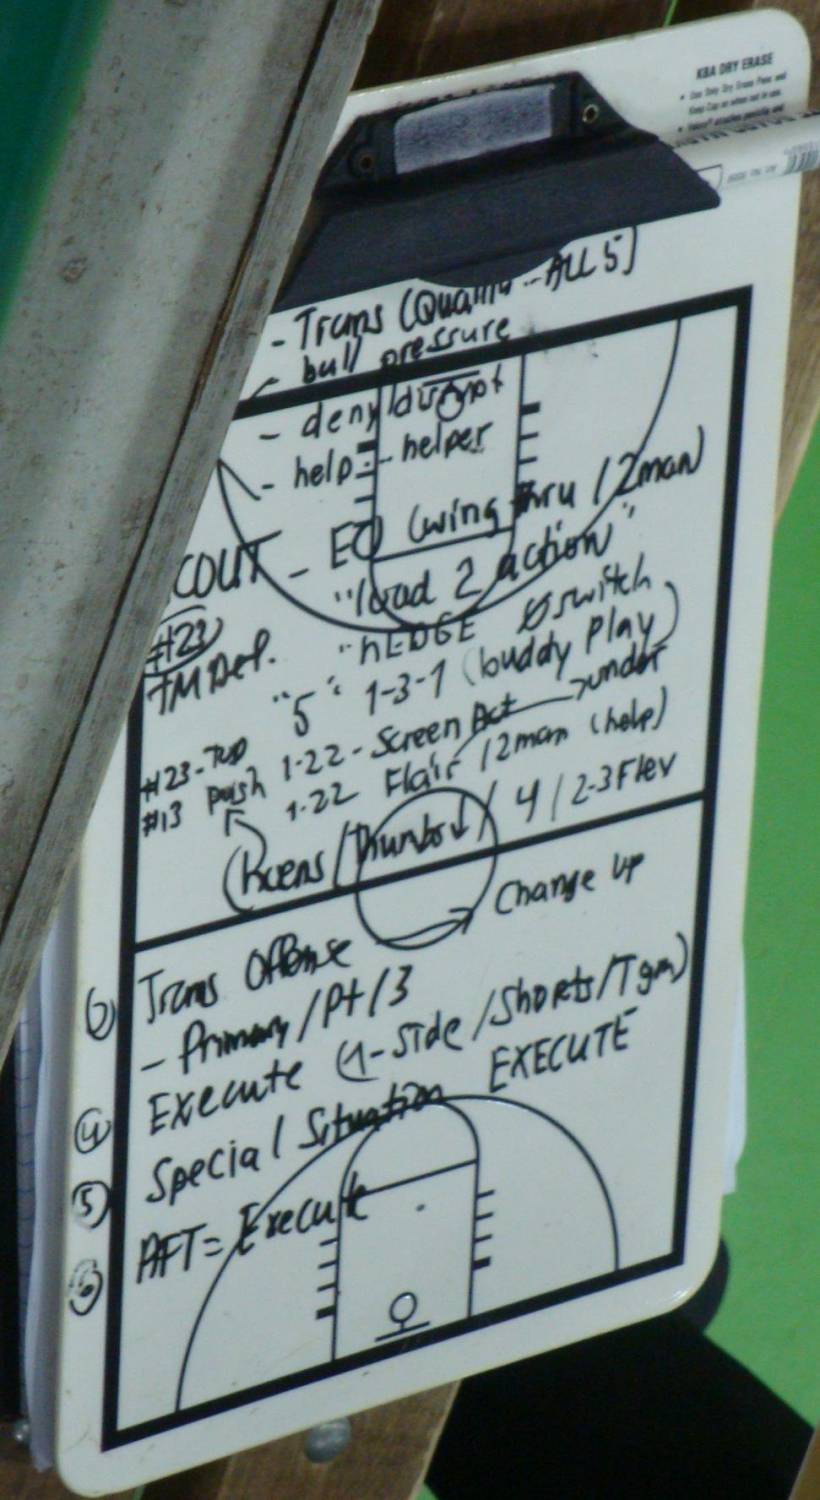 KBA DRY ERASE
• Use Only Dry Erase Pens and
Keep Cap on when not in use.
- Trans (Quality - ALL 5)
- ball pressure
- deny/disrupt
- help - helper
SCOUT - EO (wing thru / 2man)
#23 "load 2 action"
TM Def. "HEDGE switch
"5" 1-3-1 (buddy Play)
#23-Top 1-22-Screen Act → under
#13 push 1-22 Flair / 2man (help)
(Kcens / Thumbs↓ / 4 / 2-3 Flev
Trans Offense → Change up
- Primary / Pt / 3
④ Execute (1-side / Shorts / Tgm)
⑤ Special Situation EXECUTE
⑥ AFT = Execute